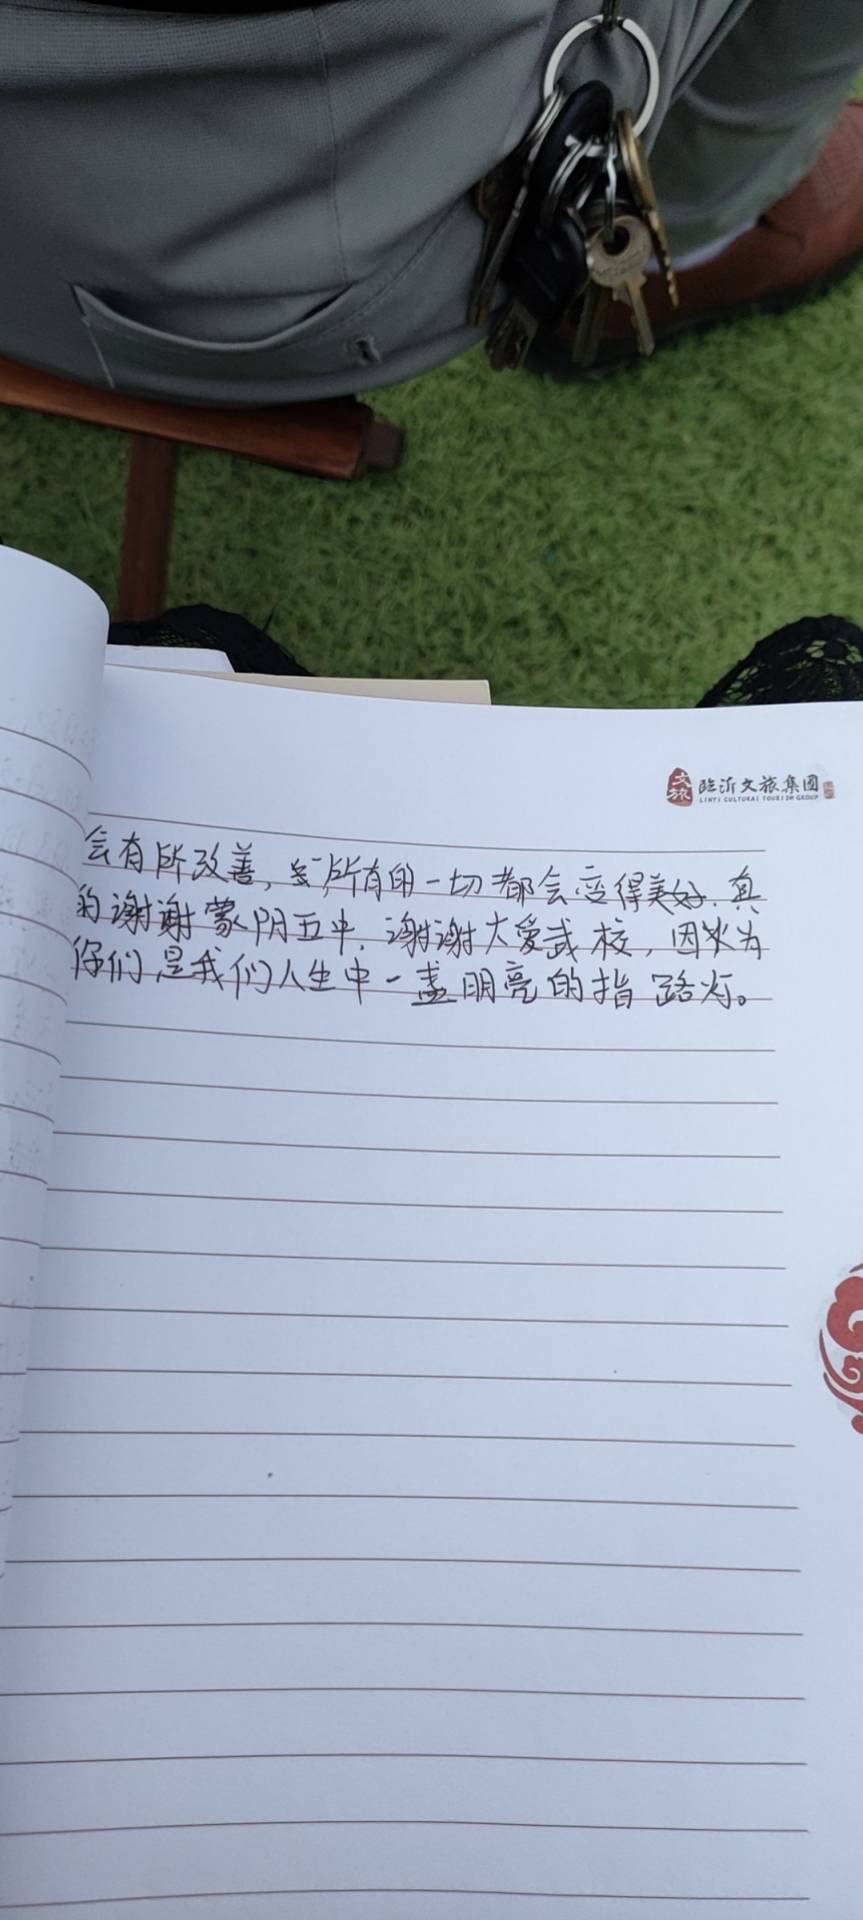 文旅 临沂文旅集团
LINYI CULTURAL TOURISM GROUP
会有所改善，所有的一切都会变得美好.真
的谢谢蒙阴五中.谢谢大爱武校，因为
你们是我们人生中一盏明亮的指路灯。